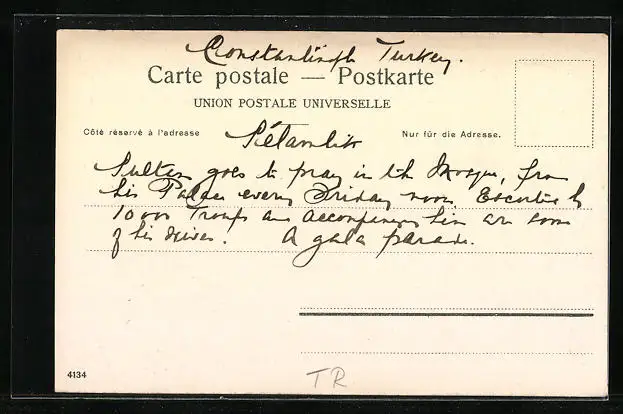 Constantinople Turkey.
Carte postale — Postkarte
UNION POSTALE UNIVERSELLE
Côté réservé à l'adresse
Nur für die Adresse.
Selamlik
Sultan goes to pray in the Mosque, from
his Palace every Friday noon, Escorted by
10 000 Troops and accompanying him are some
of his wives. A gala parade.
4134
TR